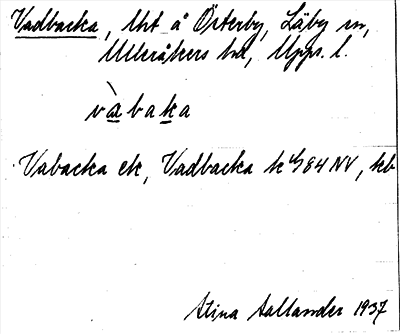 Vadbacka, lht å Österby, Läby sn,
Ulleråkers hd, Upps. l.
vàbaka
Vabacka ek, Vadbacka k 4/984 NV, kb
Stina Aallander 1937